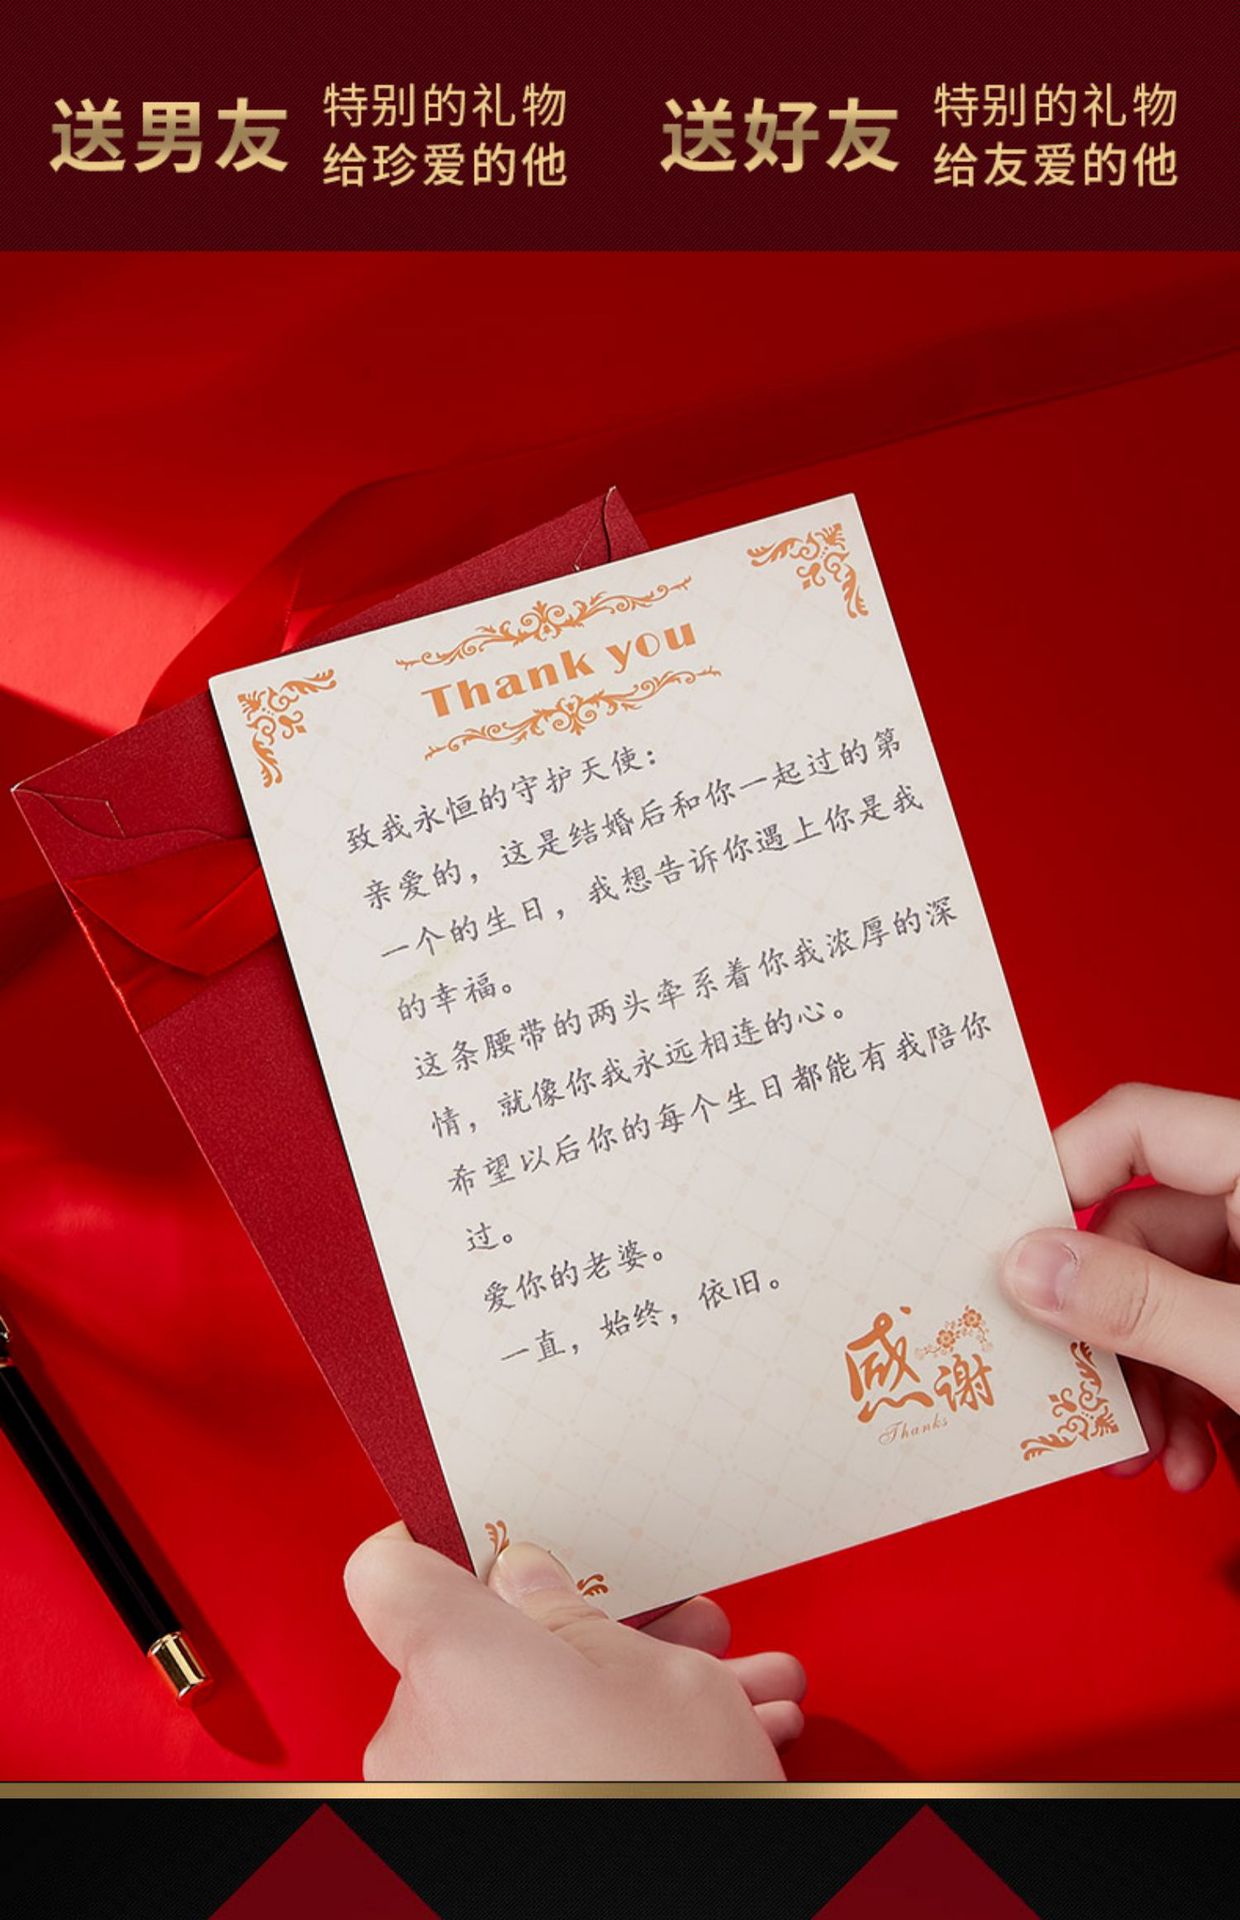 送男友
特别的礼物
给珍爱的他
送好友
特别的礼物
给友爱的他
Thank you
致我永恒的守护天使：
亲爱的，这是结婚后和你一起过的第
一个的生日，我想告诉你遇上你是我
的幸福。
这条腰带的两头牵系着你我浓厚的深
情，就像你我永远相连的心。
希望以后你的每个生日都能有我陪你
过。
爱你的老婆。
一直，始终，依旧。
感谢
Thanks